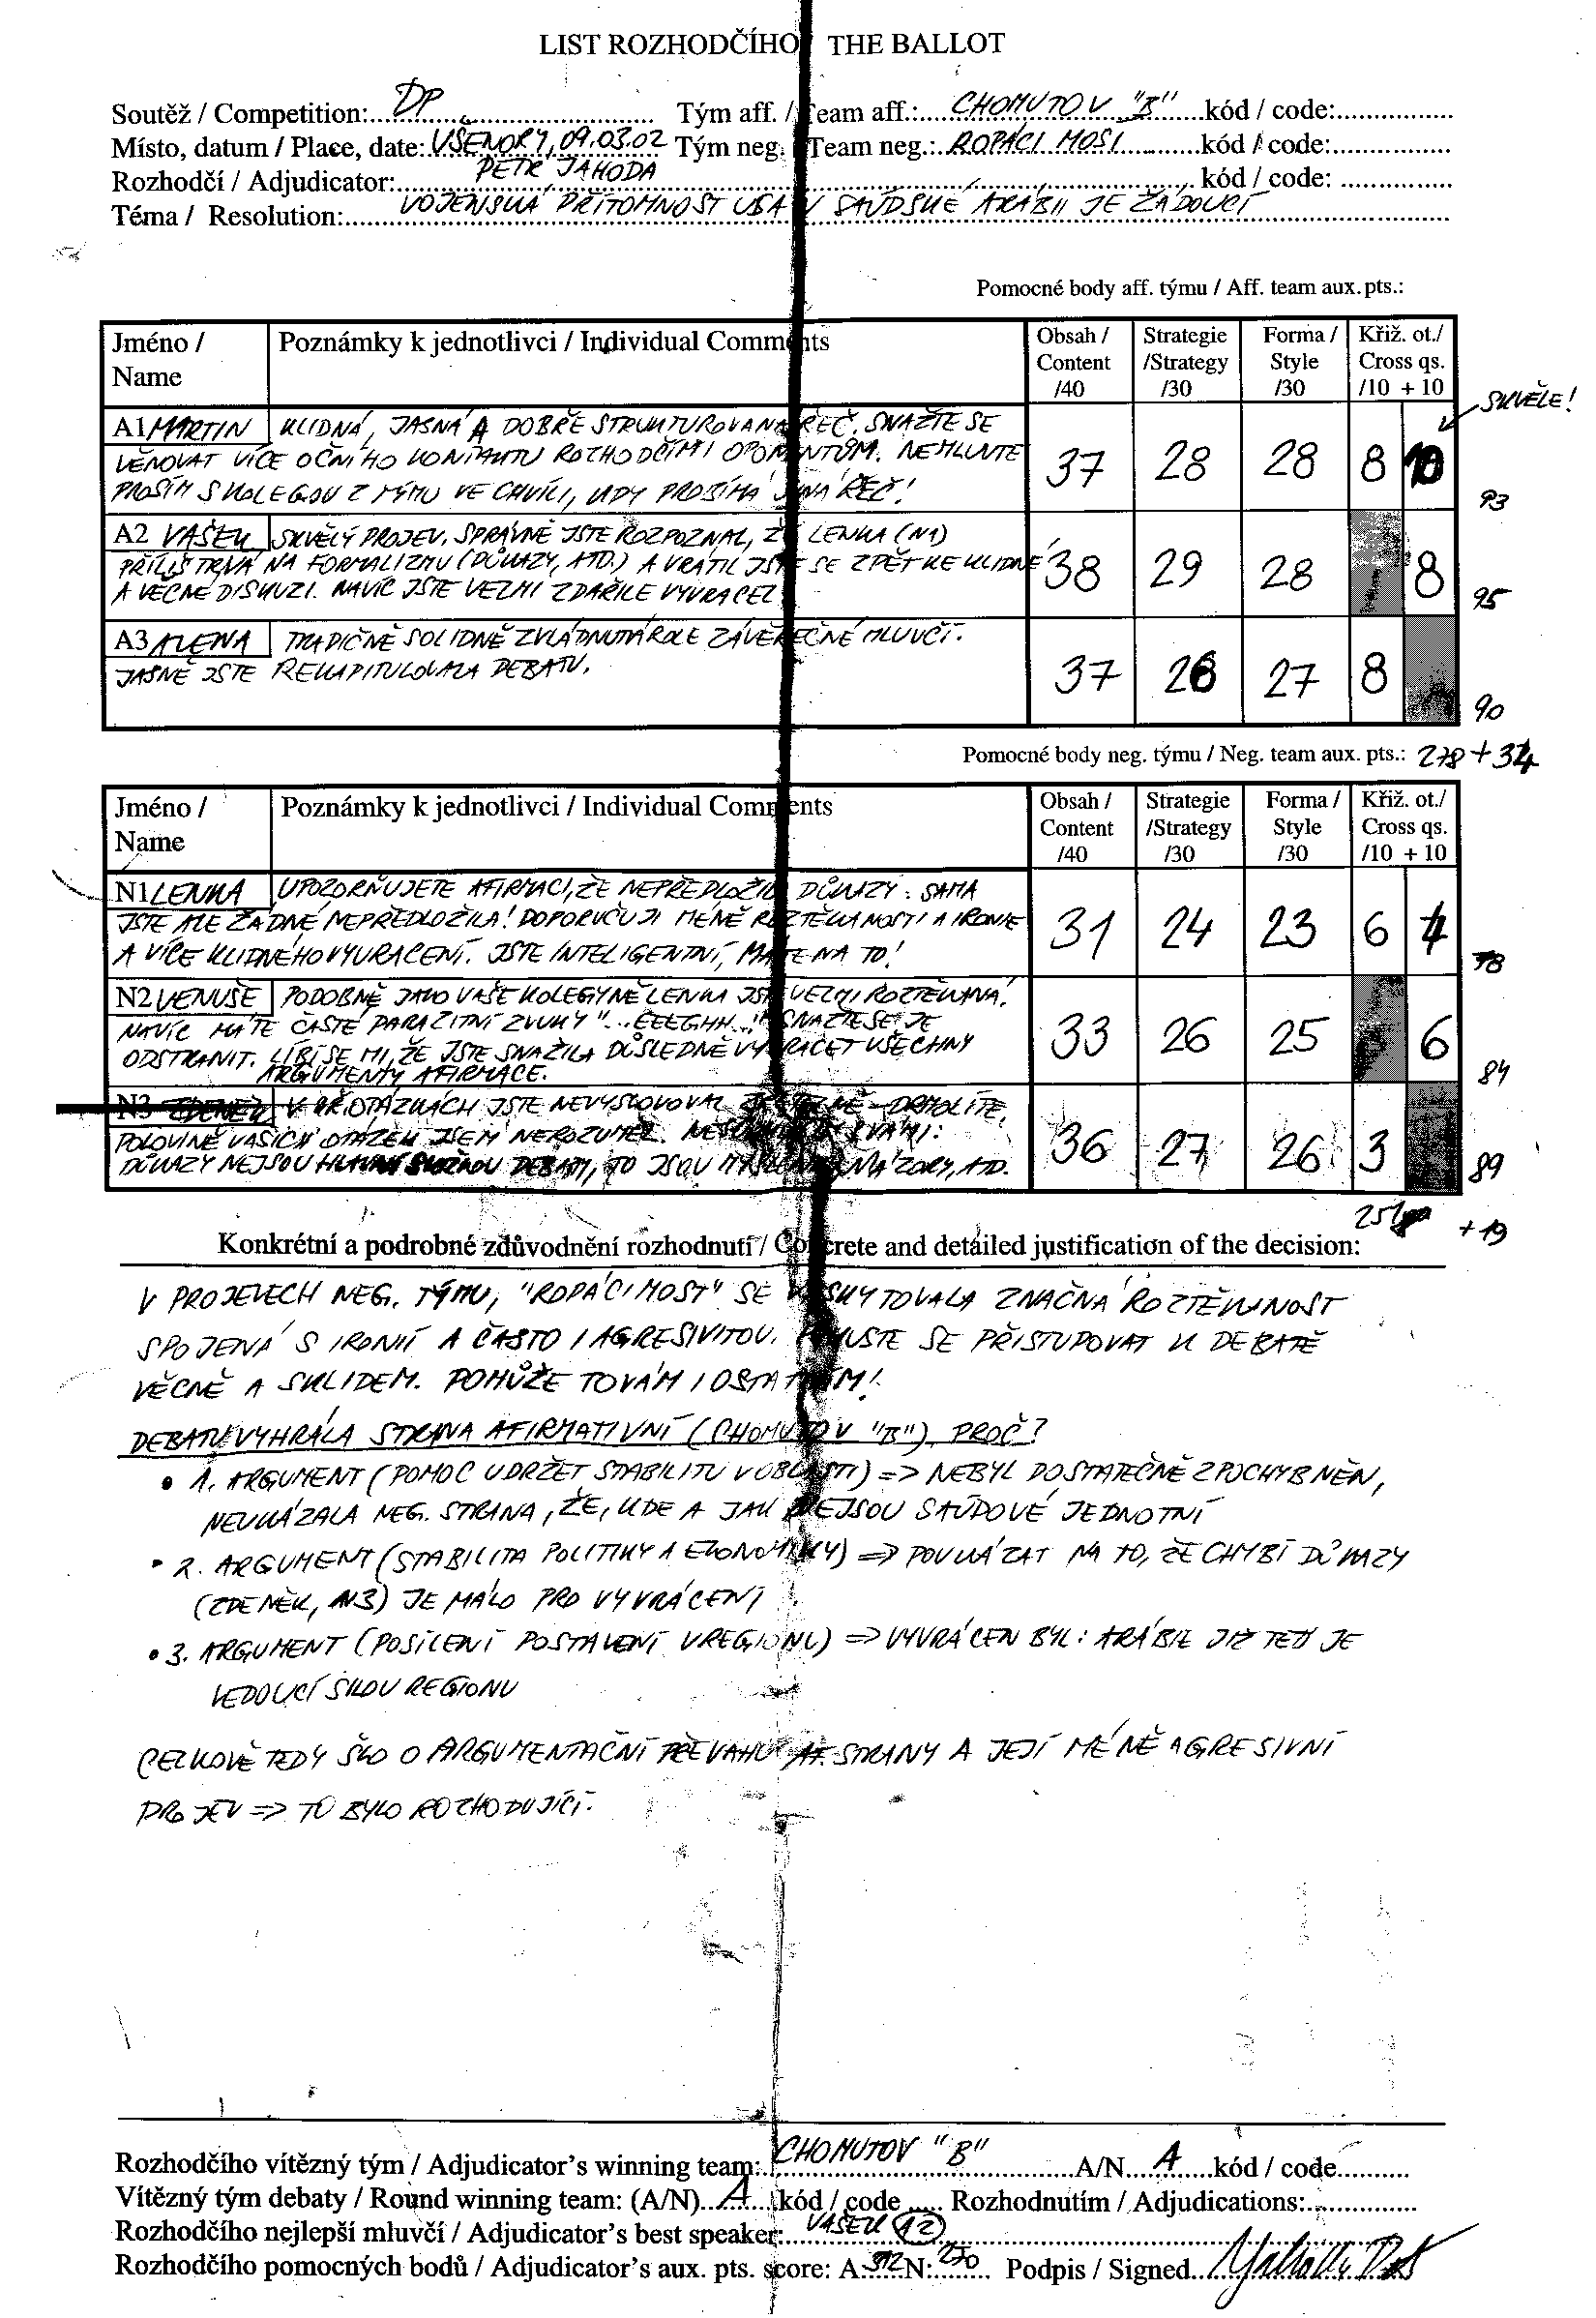 LIST ROZHODČÍHO / THE BALLOT
Soutěž / Competition: DP Tým aff. / Team aff.: CHOMUTOV "B" kód / code:
Místo, datum / Place, date: VŠENORY, 09.03.02 Tým neg. / Team neg.: ROPÁCI MOST kód / code:
Rozhodčí / Adjudicator: PETR JAHODA kód / code:
Téma / Resolution: VOJENSKÁ PŘÍTOMNOST USA V SAÚDSKÉ ARÁBII JE ŽÁDOUCÍ
Pomocné body aff. týmu / Aff. team aux. pts.:
Jméno / Name Poznámky k jednotlivci / Individual Comments Obsah / Content /40 Strategie /Strategy /30 Forma / Style /30 Křiž. ot./ Cross qs. /10 + 10
SKVĚLE!
A1 MARTIN KLIDNÁ, JASNÁ A DOBŘE STRUKTUROVANÁ ŘEČ. SNAŽTE SE
VĚNOVAT VÍCE OČNÍHO KONTAKTU ROZHODČÍM I OPONENTŮM. NEMLUVTE
PROSÍM S KOLEGOU Z TÝMU VE CHVÍLI, KDY PROBÍHÁ JINÁ ŘEČ!
37 28 28 8 10 93
A2 VAŠEK SKVĚLÝ PROJEV. SPRÁVNĚ JSTE ROZPOZNAL, ŽE LENKA (N1)
PŘÍLIŠ TRVÁ NA FORMALIZMU (DŮKAZY, ATD.) A VRÁTIL JSTE SE ZPĚT KE KLIDNÉ
A VĚCNÉ DISKUZI. NAVÍC JSTE VELMI ZDAŘILE VYVRACEL
38 29 28 8 95
A3 ALENA TRADIČNĚ SOLIDNĚ ZVLÁDNUTÁ ROLE ZÁVĚREČNÉ MLUVČÍ.
JASNĚ JSTE REKAPITULOVALA DEBATU.
37 26 27 8 90
Pomocné body neg. týmu / Neg. team aux. pts.: 278 + 34
Jméno / Name Poznámky k jednotlivci / Individual Comments Obsah / Content /40 Strategie /Strategy /30 Forma / Style /30 Křiž. ot./ Cross qs. /10 + 10
N1 LENKA UPOZORŇUJETE AFIRMACI, ŽE NEPŘEDLOŽILA DŮKAZY: SAMA
JSTE ALE ŽÁDNÉ NEPŘEDLOŽILA! DOPORUČUJI MÉNĚ ROZTĚKANOSTI A IRONIE
A VÍCE KLIDNÉHO VYVRACENÍ. JSTE INTELIGENTNÍ, MÁTE NA TO!
31 24 23 6 4 78
N2 VENUŠE PODOBNĚ JAKO VAŠE KOLEGYNĚ LENKA JSTE VELMI ROZTĚKANÁ.
NAVÍC MÁTE ČASTÉ PARAZITNÍ ZVUKY "...EEEGHH..." SNAŽTE SE JE
ODSTRANIT. LÍBÍ SE MI, ŽE JSTE SNAŽILA DŮSLEDNĚ VYVRACET VŠECHNY
ARGUMENTY AFIRMACE.
33 26 25 6 84
N3 ZDENĚK V KŘ. OTÁZKÁCH JSTE NEVYSLOVOVAL - DRMOLÍTE,
POLOVINĚ VAŠICH OTÁZEK JSEM NEROZUMĚL. VÁMI:
DŮKAZY NEJSOU HLAVNÍ SLOŽKOU DEBATY, TO JSOU MYŠLENKY, NÁZORY, ATD.
36 27 26 3 89
251 + 19
Konkrétní a podrobné zdůvodnění rozhodnutí / Concrete and detailed justification of the decision:
V PROJEVECH NEG. TÝMU, "ROPÁCI MOST" SE VYSKYTOVALA ZNAČNÁ ROZTĚKANOST
SPOJENÁ S IRONIÍ A ČASTO I AGRESIVITOU. ZKUSTE SE PŘISTUPOVAT K DEBATĚ
VĚCNĚ A S KLIDEM. POMŮŽE TO VÁM I OSTATNÍM!
DEBATU VYHRÁLA STRANA AFIRMATIVNÍ (CHOMUTOV "B"). PROČ?
• 1. ARGUMENT (POMOC UDRŽET STABILITU V OBLASTI) => NEBYL DOSTATEČNĚ ZPOCHYBNĚN,
NEUKÁZALA NEG. STRANA, ŽE, KDE A JAK NEJSOU SAÚDOVÉ JEDNOTNÍ
• 2. ARGUMENT (STABILITA POLITIKY A EKONOMIKY) => POUKÁZAT NA TO, ŽE CHYBÍ DŮKAZY
(ZDENĚK, N3) JE MÁLO PRO VYVRÁCENÍ
• 3. ARGUMENT (POSÍLENÍ POSTAVENÍ V REGIONU) => VYVRÁCEN BYL: ARÁBIE JIŽ TEĎ JE
VEDOUCÍ SILOU REGIONU
CELKOVĚ TEDY ŠLO O ARGUMENTAČNÍ PŘEVAHU AF. STRANY A JEJÍ MÉNĚ AGRESIVNÍ
PROJEV => TO BYLO ROZHODUJÍCÍ.
Rozhodčího vítězný tým / Adjudicator's winning team: CHOMUTOV "B" A/N A kód / code
Vítězný tým debaty / Round winning team: (A/N) A kód / code Rozhodnutím / Adjudications:
Rozhodčího nejlepší mluvčí / Adjudicator's best speaker: VAŠEK A2
Rozhodčího pomocných bodů / Adjudicator's aux. pts. score: A: 312 N: 270 Podpis / Signed